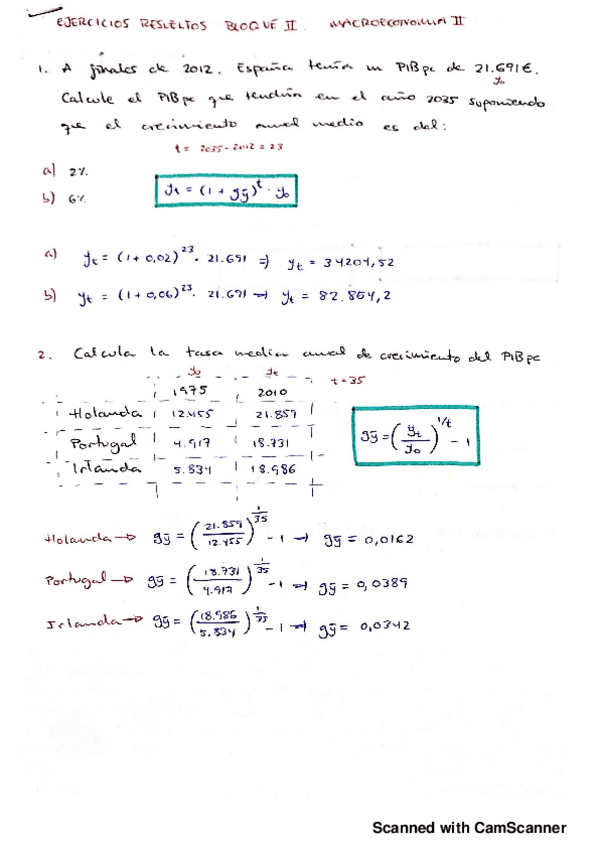 EJERCICIOS RESUELTOS BLOQUE II. MACROECONOMIA II
1. A finales de 2012, España tenía un PIBpc de 21.691€.
y₀
Calcule el PIBpc que tendría en el año 2035 suponiendo
que el crecimiento anual medio es del:
t = 2035-2012 = 23
a) 2%
b) 6%
yt = (1 + gȳ)^t · y₀
a) yt = (1+0,02)^23 · 21.691 => yt = 34204,52
b) yt = (1+0,06)^23 · 21.691 → yt = 82.854,2
2. Calcula la tasa media anual de crecimiento del PIBpc
y₀ yt
1975 2010 t=35
Holanda 12.455 21.859
Portugal 4.917 18.731
Irlanda 5.834 18.986
gȳ = (yt/y₀)^1/t - 1
Holanda → gȳ = (21.859/12.455)^1/35 - 1 → gȳ = 0,0162
Portugal → gȳ = (18.731/4.917)^1/35 - 1 → gȳ = 0,0389
Irlanda → gȳ = (18.986/5.834)^1/35 - 1 → gȳ = 0,0342
Scanned with CamScanner